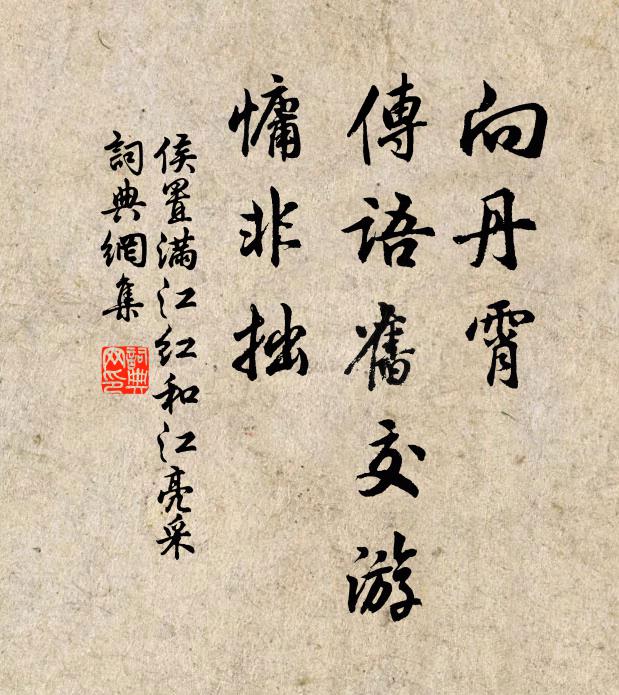 向丹霄
傳語舊交游
慵非拙
侯置滿江红和江亮采
詞典網集
詞典网印